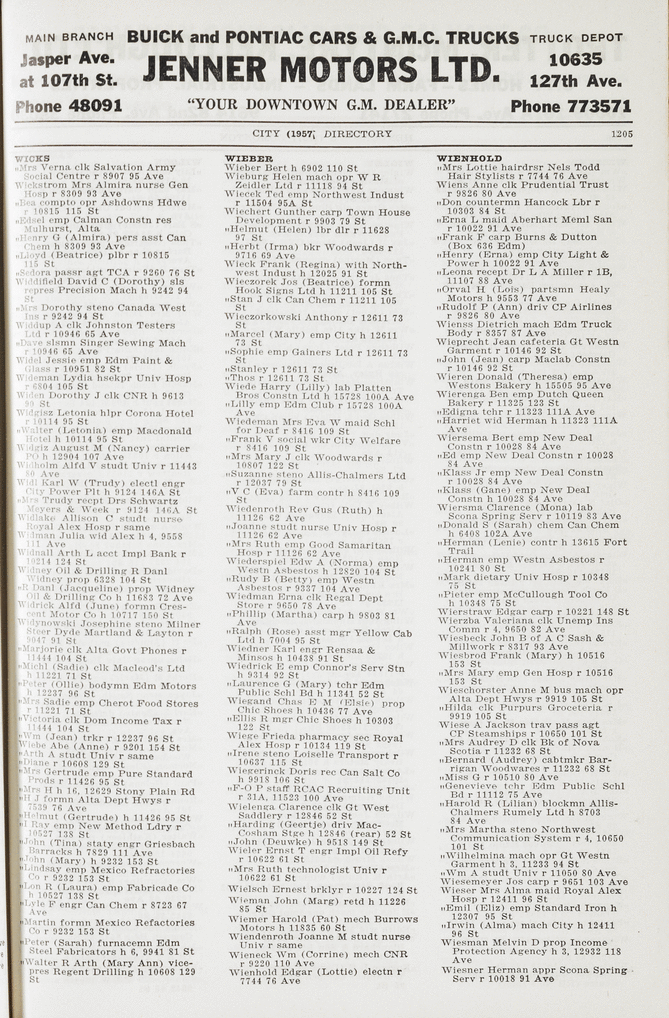 MAIN BRANCH BUICK and PONTIAC CARS & G.M.C. TRUCKS TRUCK DEPOT
Jasper Ave. at 107th St. JENNER MOTORS LTD. 10635 127th Ave.
Phone 48091 "YOUR DOWNTOWN G.M. DEALER" Phone 773571
CITY (1957) DIRECTORY 1205
WICKS
"Mrs Verna clk Salvation Army
Social Centre r 8907 95 Ave
Wickstrom Mrs Almira nurse Gen
Hosp r 8309 93 Ave
"Bea compto opr Ashdowns Hdwe
r 10815 115 St
"Edsel emp Calman Constn res
Mulhurst, Alta
"Henry G (Almira) pers asst Can
Chem h 8309 93 Ave
"Lloyd (Beatrice) plbr r 10815
115 St
"Sedora passr agt TCA r 9260 76 St
Widdifield David C (Dorothy) sls
repres Precision Mach h 9242 94
St
"Mrs Dorothy steno Canada West
Ins r 9242 94 St
Widdup A clk Johnston Testers
Ltd r 10946 65 Ave
"Dave slsmn Singer Sewing Mach
r 10946 65 Ave
Widel Jessie emp Edm Paint &
Glass r 10951 82 St
Wideman Lydia hsekpr Univ Hosp
r 6804 105 St
Widen Dorothy J clk CNR h 9613
St
Widgisz Letonia hlpr Corona Hotel
r 10114 95 St
"Walter (Letonia) emp Macdonald
Hotel h 10114 95 St
Widgiz August M (Nancy) carrier
PO h 12904 107 Ave
Widholm Alfd V studt Univ r 11443
80 Ave
Widl Karl W (Trudy) electl engr
City Power Plt h 9124 146A St
"Mrs Trudy recpt Drs Schwartz
Meyers & Week r 9124 146A St
Widlake Allison C studt nurse
Royal Alex Hosp r same
Widman Julia wid Alex h 4, 9558
111 Ave
Widnall Arth L acct Impl Bank r
10214 124 St
Widney Oil & Drilling R Danl
Widney prop 6328 104 St
"R Danl (Jacqueline) prop Widney
Oil & Drilling Co h 11683 72 Ave
Widrick Alfd (June) formn Crescent
Motor Co h 10717 150 St
Widynowski Josephine steno Milner
Steer Dyde Martland & Layton r
9047 91 St
"Marjorie clk Alta Govt Phones r
11444 104 St
"Michl (Sadie) clk Macleod's Ltd
h 11221 71 St
"Peter (Ollie) bodymn Edm Motors
h 12237 96 St
"Mrs Sadie emp Cherot Food Stores
r 11221 71 St
"Victoria clk Dom Income Tax r
11444 104 St
"Wm (Jean) trkr r 12237 96 St
Wiebe Abe (Anne) r 9201 154 St
"Arth A studt Univ r same
"Diane r 10608 129 St
"Mrs Gertrude emp Pure Standard
Prods r 11426 95 St
"Mrs H h 16, 12629 Stony Plain Rd
"H J formn Alta Dept Hwys r
7539 76 Ave
"Helmut (Gertrude) h 11426 95 St
"I Ray emp New Method Ldry r
10527 138 St
"John (Tina) staty engr Griesbach
Barracks h 7829 111 Ave
"John (Mary) h 9232 153 St
"Lindsay emp Mexico Refractories
Co r 9232 153 St
"Lon R (Laura) emp Fabricade Co
h 10527 138 St
"Lyle F engr Can Chem r 8723 67
Ave
"Martin formn Mexico Refractories
Co r 9232 153 St
"Peter (Sarah) furnacemn Edm
Steel Fabricators h 6, 9941 81 St
"Walter R Arth (Mary Ann) vice-
pres Regent Drilling h 10608 129
St
WIEBER
Wieber Bert h 6902 110 St
Wieburg Helen mach opr W R
Zeidler Ltd r 11118 94 St
Wieck Ted emp Northwest Indust
r 11504 95A St
Wiechert Gunther carp Town House
Development r 9903 79 St
"Helmut (Helen) lbr dlr r 11628
97 St
"Herbt (Irma) bkr Woodwards r
9716 69 Ave
Wieck Frank (Regina) with North-
west Indust h 12025 91 St
Wieczorek Jos (Beatrice) formn
Hook Signs Ltd h 11211 105 St
"Stan J clk Can Chem r 11211 105
St
Wieczorkowski Anthony r 12611 73
St
"Marcel (Mary) emp City h 12611
73 St
"Sophie emp Gainers Ltd r 12611 73
St
"Stanley r 12611 73 St
"Thos r 12611 73 St
Wiede Harry (Lilly) lab Platten
Bros Constn Ltd h 15728 100A Ave
"Lilly emp Edm Club r 15728 100A
Ave
Wiedeman Mrs Eva W maid Schl
for Deaf r 8416 109 St
"Frank V social wkr City Welfare
r 8416 109 St
"Mrs Mary J clk Woodwards r
10807 122 St
"Suzanne steno Allis-Chalmers Ltd
r 12037 79 St
"V C (Eva) farm contr h 8416 109
St
Wiedenroth Rev Gus (Ruth) h
11126 62 Ave
"Joanne studt nurse Univ Hosp r
11126 62 Ave
"Mrs Ruth emp Good Samaritan
Hosp r 11126 62 Ave
Wiederspiel Edw A (Norma) emp
Westn Asbestos h 12820 104 St
"Rudy B (Betty) emp Westn
Asbestos r 9337 104 Ave
Wiedman Erna clk Regal Dept
Store r 9650 78 Ave
"Phillip (Martha) carp h 9803 81
Ave
"Ralph (Rose) asst mgr Yellow Cab
Ltd h 7004 95 St
Wiedner Karl engr Rensaa &
Minsos h 10438 91 St
Wiedrick E emp Connor's Serv Stn
h 9314 92 St
"Laurence G (Mary) tchr Edm
Public Schl Bd h 11341 52 St
Wiegand Chas E M (Elsie) prop
Chic Shoes h 10436 77 Ave
"Ellis R mgr Chic Shoes h 10303
122 St
Wiege Frieda pharmacy sec Royal
Alex Hosp r 10134 119 St
"Irene steno Loiselle Transport r
10637 115 St
Wiegerinck Doris rec Can Salt Co
h 9918 106 St
"F-O P staff RCAC Recruiting Unit
r 31A, 11523 100 Ave
Wielenga Clarence clk Gt West
Saddlery r 12846 52 St
"Harding (Geertje) driv Mac-
Cosham Stge h 12846 (rear) 52 St
"John (Deuwke) h 9518 149 St
Wieler Ernst T engr Impl Oil Refy
r 10622 61 St
"Mrs Ruth technologist Univ r
10622 61 St
Wielsch Ernest brklyr r 10227 124 St
Wieman John (Marg) retd h 11226
85 St
Wiemer Harold (Pat) mech Burrows
Motors h 11835 60 St
Wiendenroth Joanne M studt nurse
Univ r same
Wieneck Wm (Corrine) mech CNR
r 9220 110 Ave
Wienhold Edgar (Lottie) electn r
7744 76 Ave
WIENHOLD
"Mrs Lottie hairdrsr Nels Todd
Hair Stylists r 7744 76 Ave
Wiens Anne clk Prudential Trust
r 9826 80 Ave
"Don countermn Hancock Lbr r
10303 84 St
"Erna L maid Aberhart Meml San
r 10022 91 Ave
"Frank F carp Burns & Dutton
(Box 636 Edm)
"Henry (Erna) emp City Light &
Power h 10022 91 Ave
"Leona recept Dr L A Miller r 1B,
11107 88 Ave
"Orval H (Lois) partsmn Healy
Motors h 9553 77 Ave
"Rudolf P (Ann) driv CP Airlines
r 9826 80 Ave
Wienss Dietrich mach Edm Truck
Body r 8357 87 Ave
Wieprecht Jean cafeteria Gt Westn
Garment r 10146 92 St
"John (Jean) carp Maclab Constn
r 10146 92 St
Wieren Donald (Theresa) emp
Westons Bakery h 15505 95 Ave
Wierenga Ben emp Dutch Queen
Bakery r 11325 123 St
"Edigna tchr r 11323 111A Ave
"Harriet wid Herman h 11323 111A
Ave
Wiersema Bert emp New Deal
Constn r 10028 84 Ave
"Ed emp New Deal Constn r 10028
84 Ave
"Klass Jr emp New Deal Constn
r 10028 84 Ave
"Klass (Gane) emp New Deal
Constn h 10028 84 Ave
Wiersma Clarence (Mona) lab
Scona Spring Serv r 10119 83 Ave
"Donald S (Sarah) chem Can Chem
h 6408 102A Ave
"Herman (Lenie) contr h 13615 Fort
Trail
"Herman emp Westn Asbestos r
10241 80 St
"Mark dietary Univ Hosp r 10348
75 St
"Pieter emp McCullough Tool Co
h 10348 75 St
Wierstraw Edgar carp r 10221 148 St
Wierzba Valeriana clk Unemp Ins
Comm r 4, 9650 82 Ave
Wiesbeck John B of A C Sash &
Millwork r 8317 93 Ave
Wiesbrod Frank (Mary) h 10516
153 St
"Mrs Mary emp Gen Hosp r 10516
153 St
Wieschorster Anne M bus mach opr
Alta Dept Hwys r 9919 105 St
"Hilda clk Purpurs Groceteria r
9919 105 St
Wiese A Jackson trav pass agt
CP Steamships r 10650 101 St
"Mrs Audrey D clk Bk of Nova
Scotia r 11232 68 St
"Bernard (Audrey) cabtmkr Bar-
rigan Woodwares r 11232 68 St
"Miss G r 10510 80 Ave
"Genevieve tchr Edm Public Schl
Bd r 11112 75 Ave
"Harold R (Lilian) blockmn Allis-
Chalmers Rumely Ltd h 8703
84 Ave
"Mrs Martha steno Northwest
Communication System r 4, 10650
101 St
"Wilhelmina mach opr Gt Westn
Garment h 3, 11233 94 St
"Wm A studt Univ r 11050 80 Ave
Wiesemeyer Jos carp r 9651 103 Ave
Wieser Mrs Alma maid Royal Alex
Hosp r 12411 96 St
"Emil (Eliz) emp Standard Iron h
12307 95 St
"Irwin (Alma) mach City h 12411
96 St
Wiesman Melvin D prop Income
Protection Agency h 3, 12932 118
Ave
Wiesner Herman appr Scona Spring
Serv r 10018 91 Ave